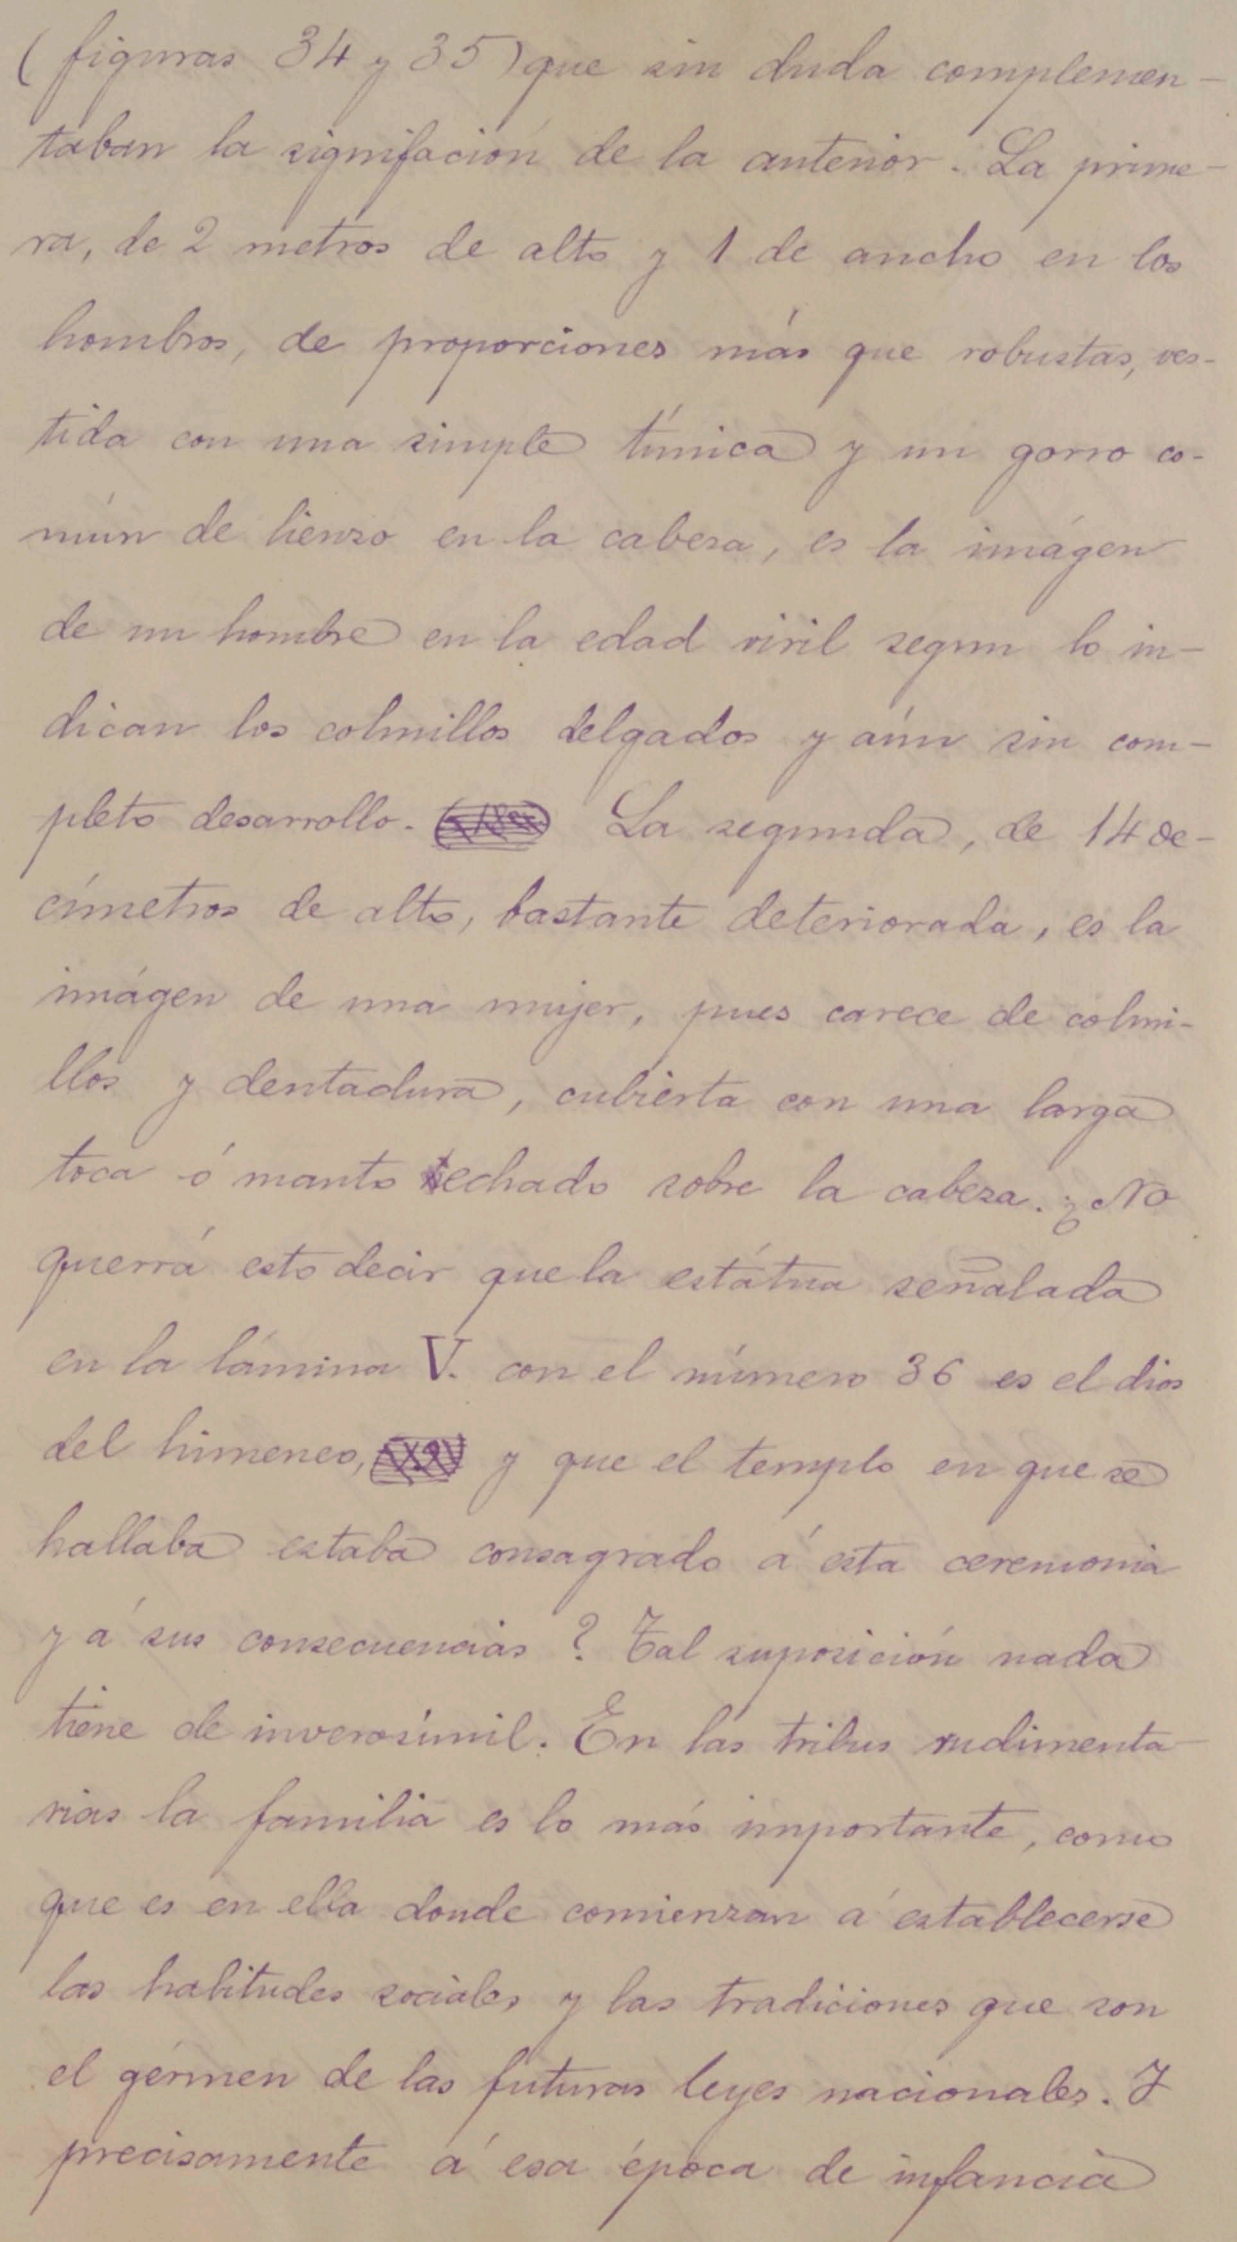 (figuras 34 y 35) que sin duda complemen-
taban la signifación de la anterior. La prime-
ra, de 2 metros de alto y 1 de ancho en los
hombros, de proporciones más que robustas, ves-
tida con una simple túnica y un gorro co-
mún de lienzo en la cabeza, es la imágen
de un hombre en la edad viril segun lo in-
dican los colmillos delgados y aún sin com-
pleto desarrollo. La segunda, de 14 de-
címetros de alto, bastante deteriorada, es la
imágen de una mujer, pues carece de colmi-
llos y dentadura, cubierta con una larga
toca ó manto echado sobre la cabeza. ¿No
querrá esto decir que la estátua señalada
en la lámina V. con el número 36 es el dios
del himeneo, y que el templo en que se
hallaba estaba consagrado á esta ceremonia
y á sus consecuencias? Tal suposición nada
tiene de inverosímil. En las tribus rudimenta-
rias la familia es lo más importante, como
que es en ella donde comienzan á establecerse
las habitudes sociales y las tradiciones que son
el gérmen de las futuras leyes nacionales. Y
precisamente á esa época de infancia